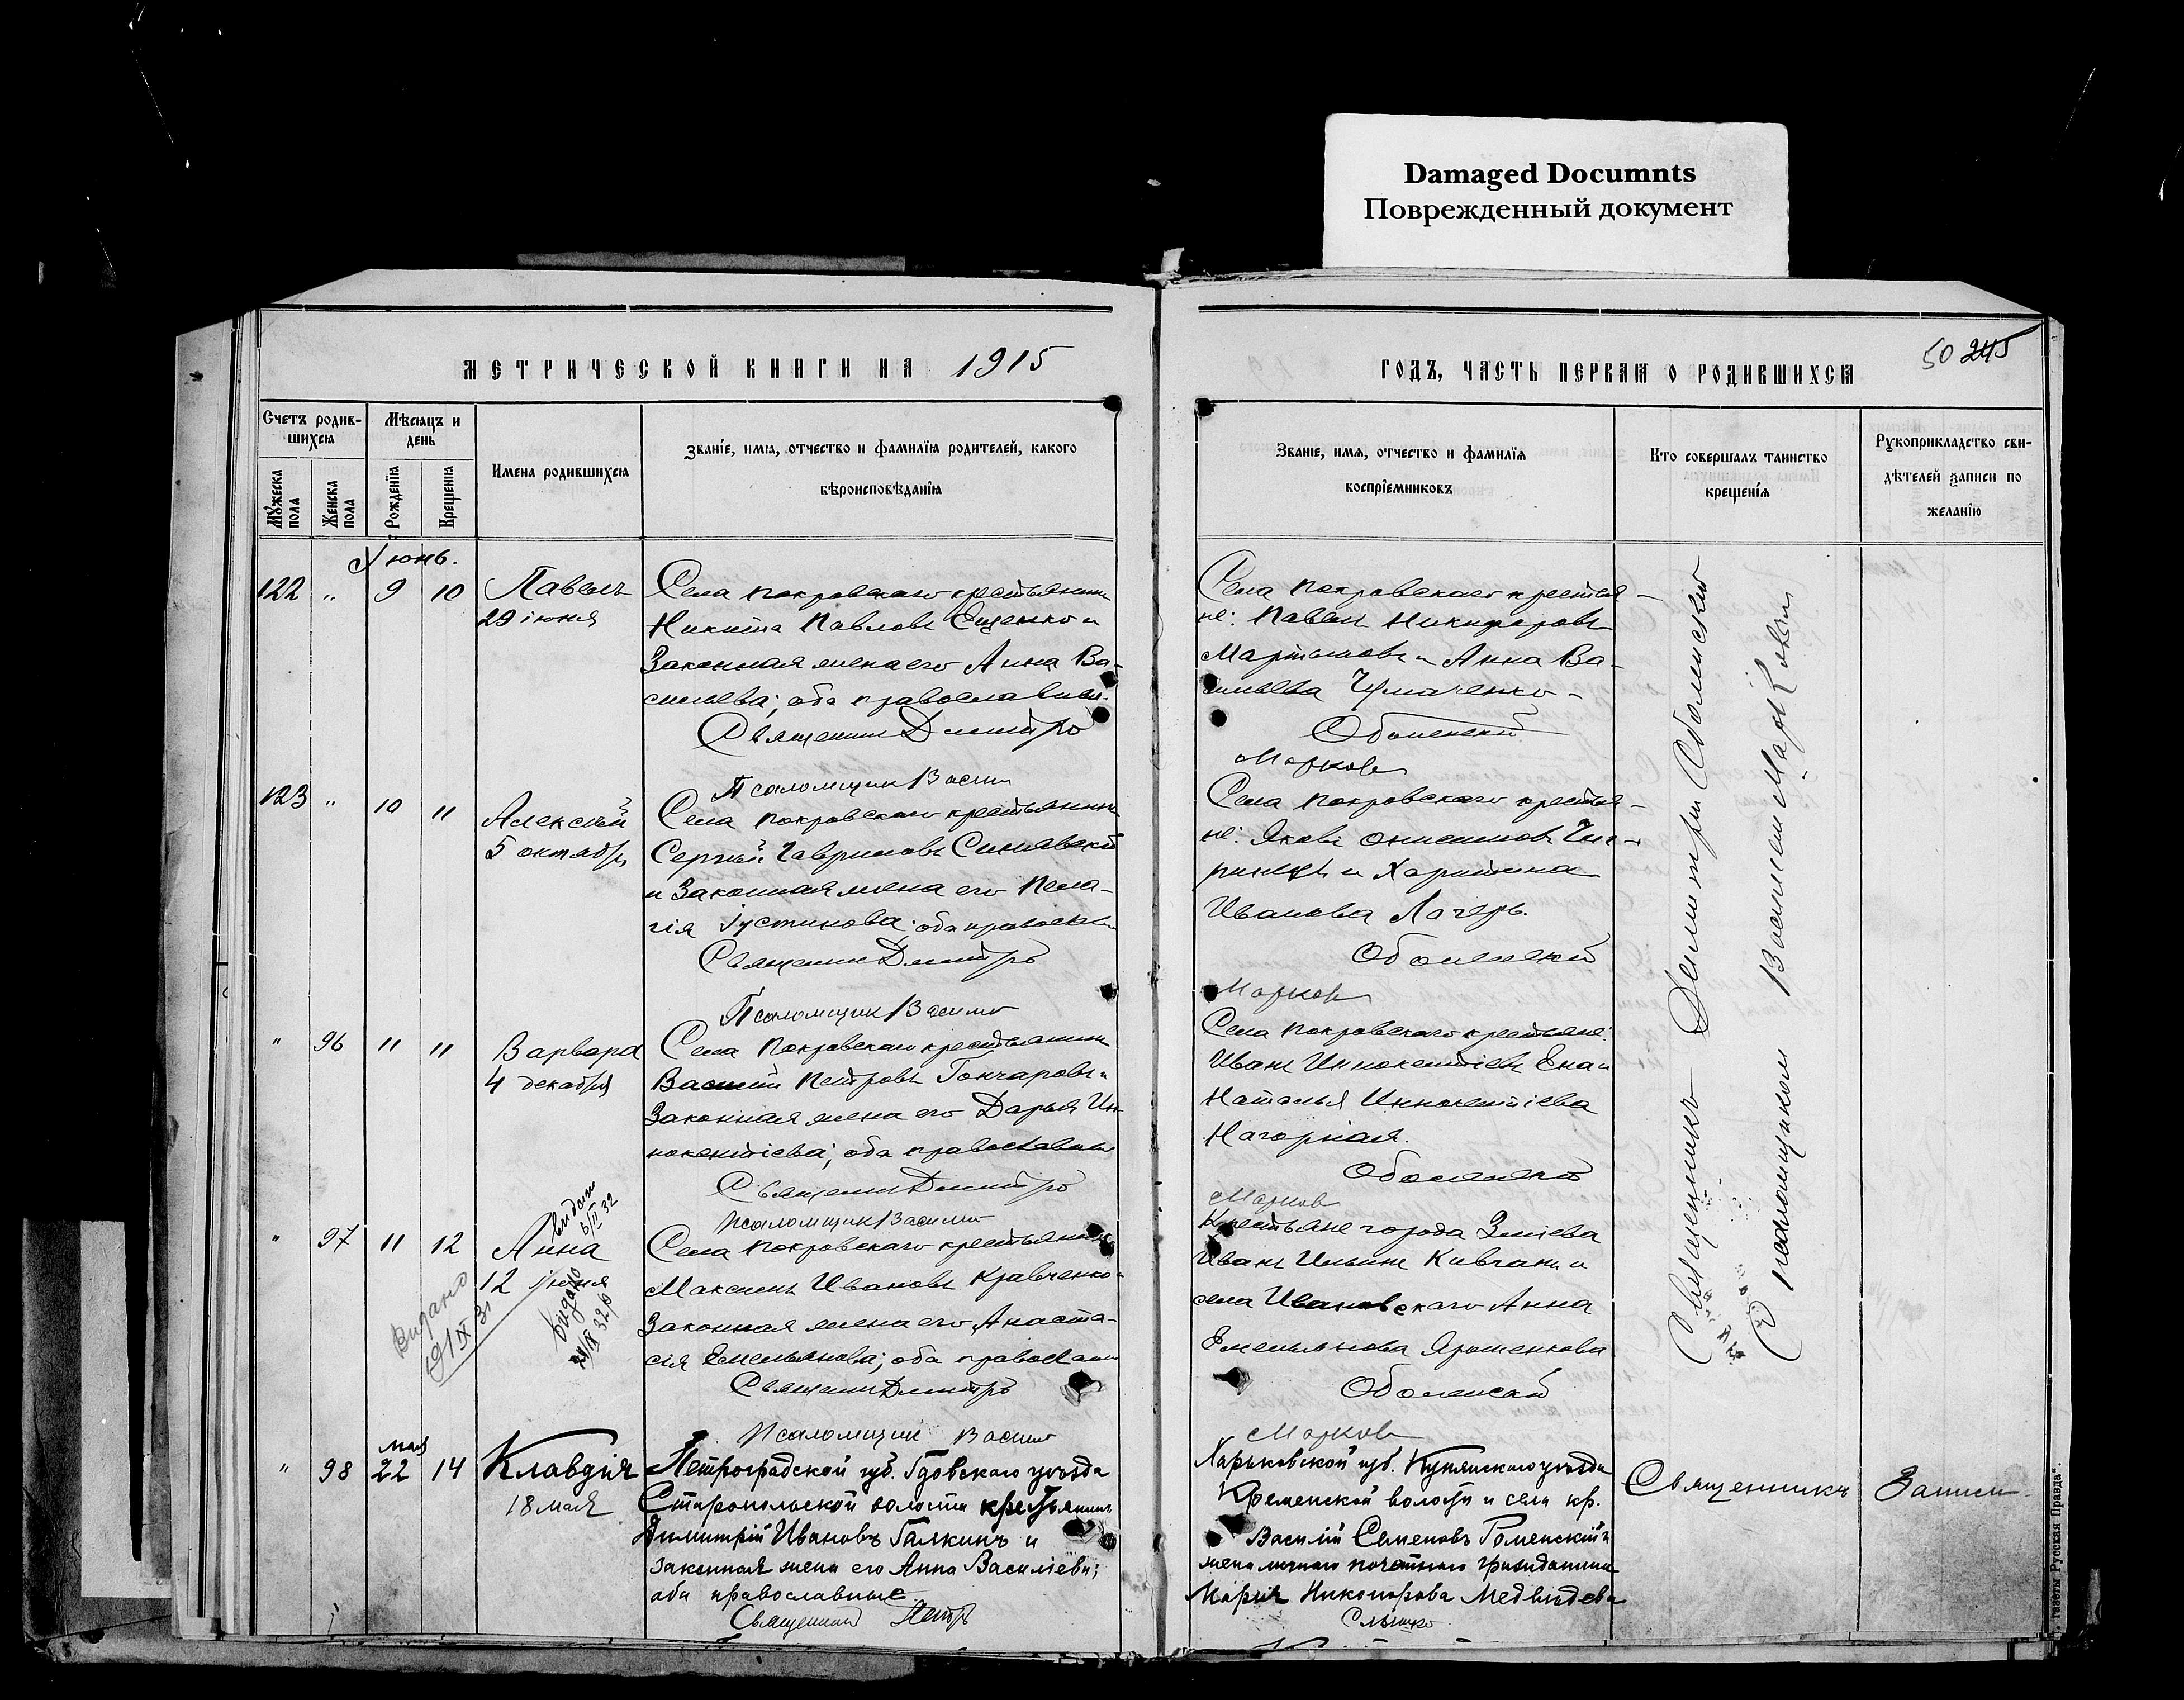 Damaged Documnts
Поврежденный документ
МЕТРИЧЕСКОЙ КНИГИ НА 1915
ГОДЪ, ЧАСТЬ ПЕРВАѦ О РОДИВШИХСѦ
50 245
Счетъ родив-
шихсѧ
Мужеска пола
Женска пола
Мѣсѧцъ и
день
Рожденїѧ
Крещенїѧ
Имена родившихсѧ
Званїе, имѧ, отчество и фамилїѧ родителей, какого
вѣроисповѣданїѧ
Званїе, имѧ, отчество и фамилїѧ
воспрїемниковъ
Кто совершалъ таинство
крещенїѧ
Рукоприкладство сви-
дѣтелей записи по
желанїю
Іюнь.
122 " 9 10 Павелъ
29 іюня
Села Покровскаго крестьянинъ
Никита Павловъ Ещенко и
Законная жена его Анна Ва-
сильева; оба православны.
Священник Димитрій
Псаломщик Васил
Села Покровскаго крестья-
не: Павел Никифоровъ
Мартыновъ и Анна Ва-
сильева Чумаченко
Оболенский
Марковъ
123 " 10 11 Алексѣй
5 октября
Села Покровскаго крестьянинъ
Сергѣй Гавриловъ Синявскій
и Законная жена его Пела-
гія Іустинова; оба православн
Священник Дмитрій
Псаломщик Васил
Села Покровскаго крестья-
не: Яковъ Онисимовъ
и Харитина
Иванова Лагерь.
Оболенский
Марковъ
" 96 11 11 Варвара
4 декабря
Села Покровскаго крестьянинъ
Василій Петровъ Гончаровъ и
Законная жена его Дарья Ин-
нокентіева; оба православны
Священник Дмитрій
Псаломщик Васил
Села Покровскаго крестьяне:
Иванъ Иннокентіевъ
Наталья Иннокентіева
Нагорная.
Оболенский
Марков
" 97 11 12 Анна
12 Іюня
видано
6/II 32
Видано
19/IX 31
видано
Села Покровскаго крестьянинъ
Максимъ Ивановъ Кравченко
Законная жена его Анаста-
сія Емельянова; оба православн
Священник Дмитрій
Псаломщик Васил
Крестьяне города Зміева
Иванъ Ильинъ и
села Ивановскаго Анна
Емельянова Ярошенкова
Оболенский
Марковъ
Мая
" 98 22 14 Клавдія
18 мая
Петроградской губ. Гдовскаго уѣзда
Старопольской волости крестьянинъ
Димитрій Ивановъ Галкинъ и
законная жена его Анна Василіева;
оба православные
Священник Петръ
Харьковской губ. Купянскаго уѣзда
Кременской волости и села кр.
Василій Семеновъ Роменскій и
жена личнаго почетнаго гражданина
Марія Никонорова Медвѣдева
Слѣпко
Священникъ Димитрій Оболенскій
Съ псаломщиком Василіем
Священникъ
Записи
газеты „Русская Правда“.